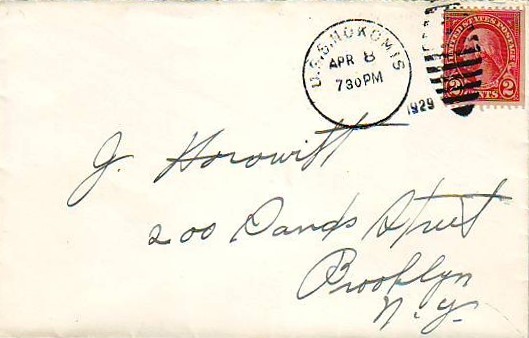 U.S.S. NOKOMIS
APR 8
730PM
1929
UNITED STATES POSTAGE
2 CENTS 2
J. Horowitt
200 Davids Street
Brooklyn
N.Y.